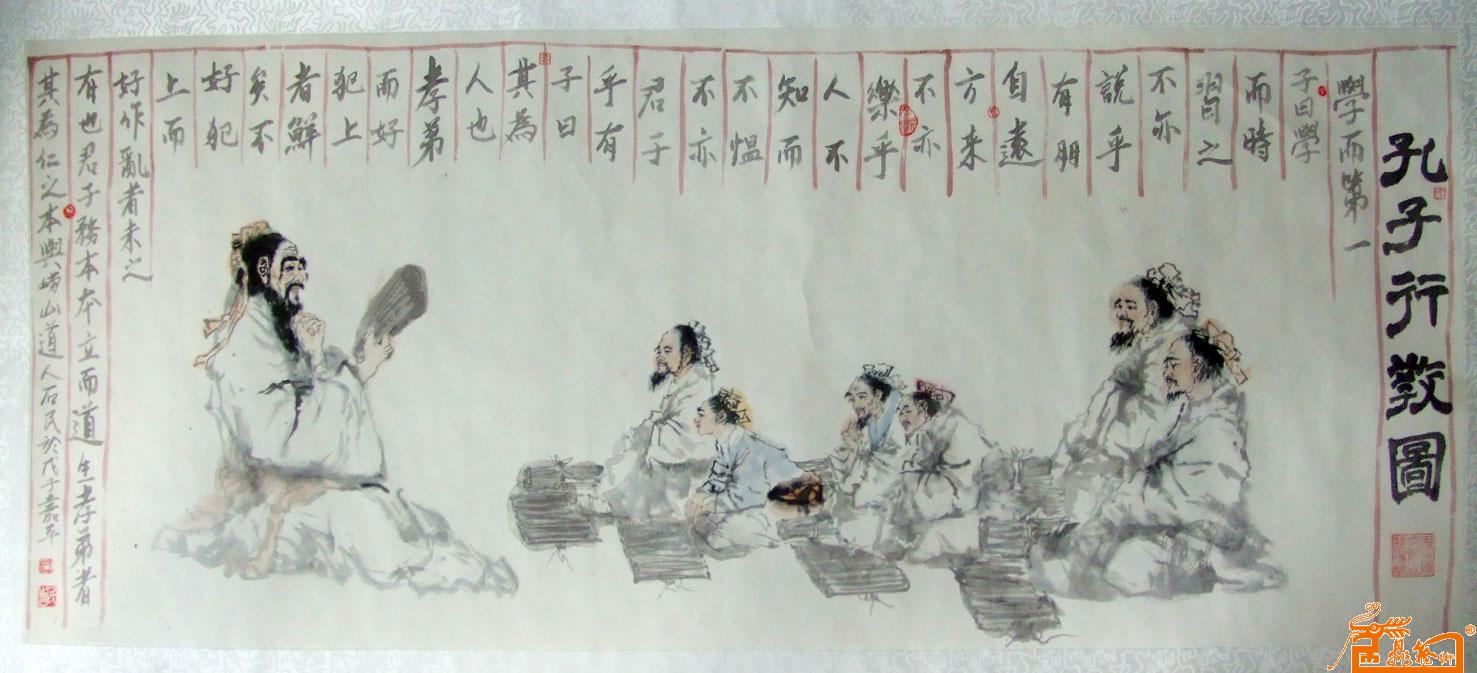 孔子行教圖
學而第一
子曰學
而時
習之
不亦
說乎
有朋
自遠
方来
不亦
樂乎
人不
知而
不愠
不亦
君子
乎有
子曰
其為
人也
孝弟
而好
犯上
者鮮
矣不
好犯
上而
好作亂者未之
有也君子務本本立而道生孝弟者
其為仁之本與嶗山道人石民於戊子嘉平